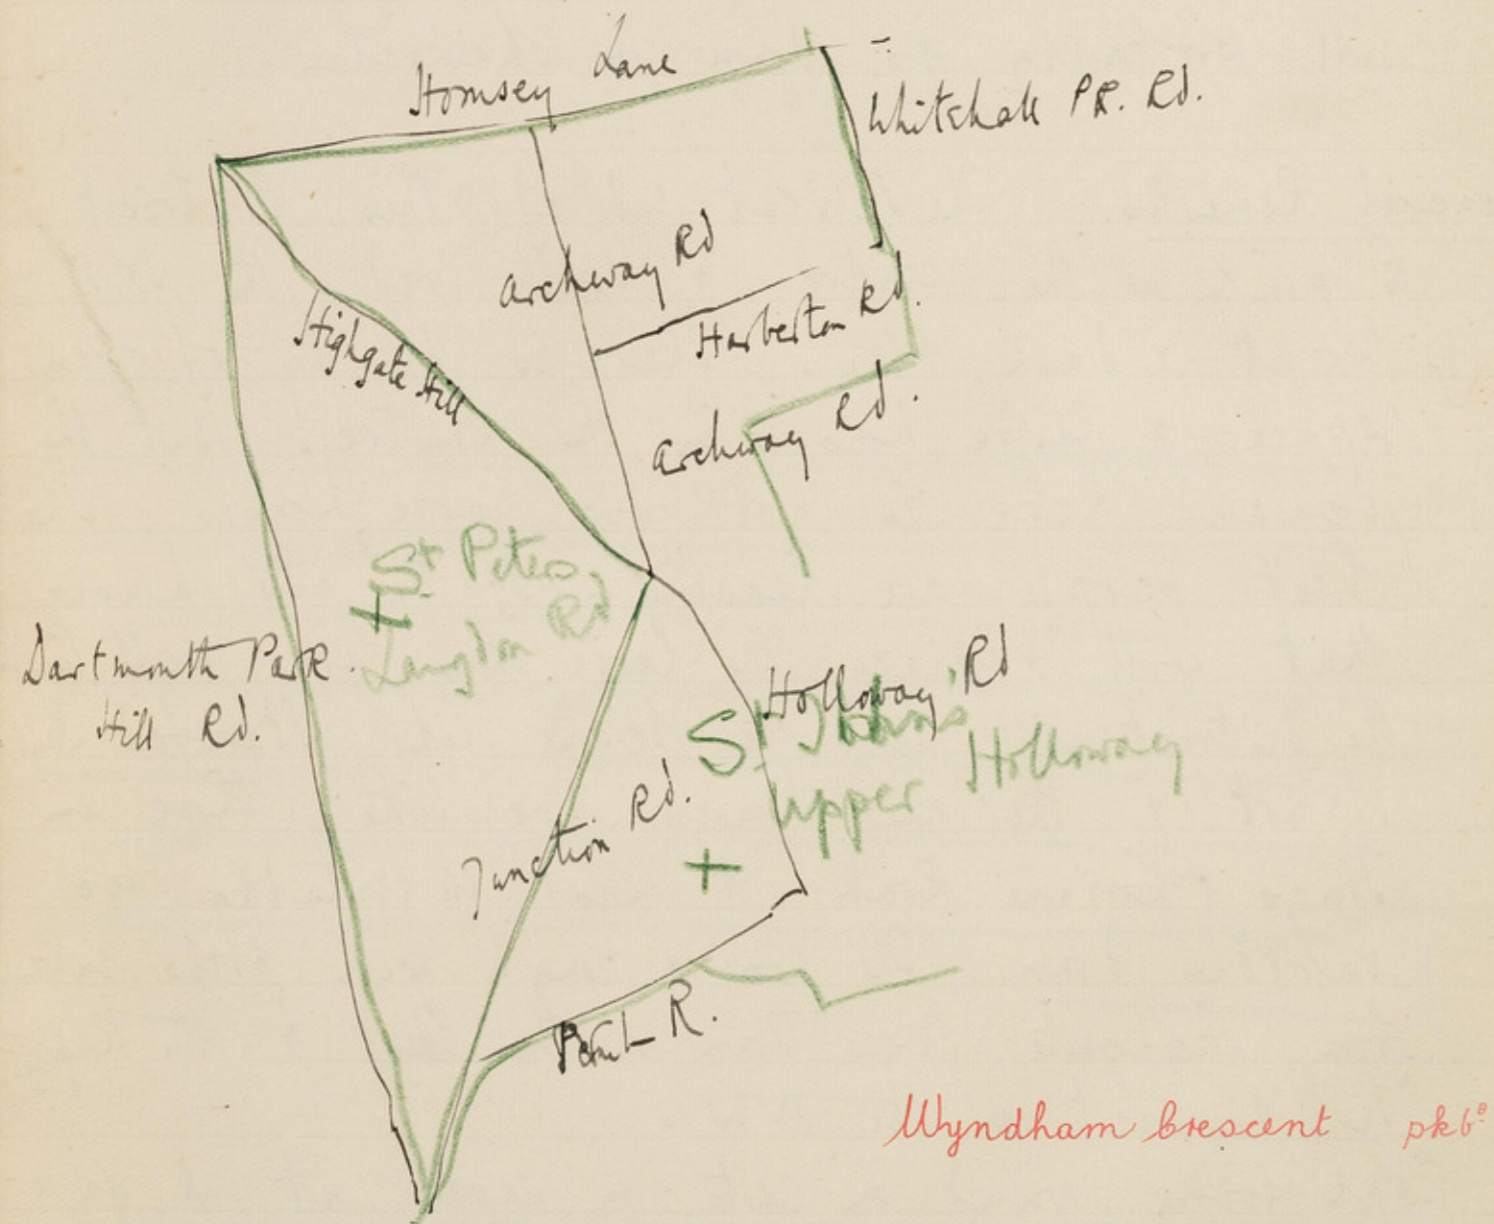 Hornsey Lane
Whitehall Pk. Rd.
Archway Rd
Harberton Rd.
Highgate Hill
Archway Rd.
St Peters,
Langdon Rd
Dartmouth Park
Hill Rd.
Holloway Rd
St John's
Upper Holloway
Junction Rd.
R.
Wyndham Crescent pkb?